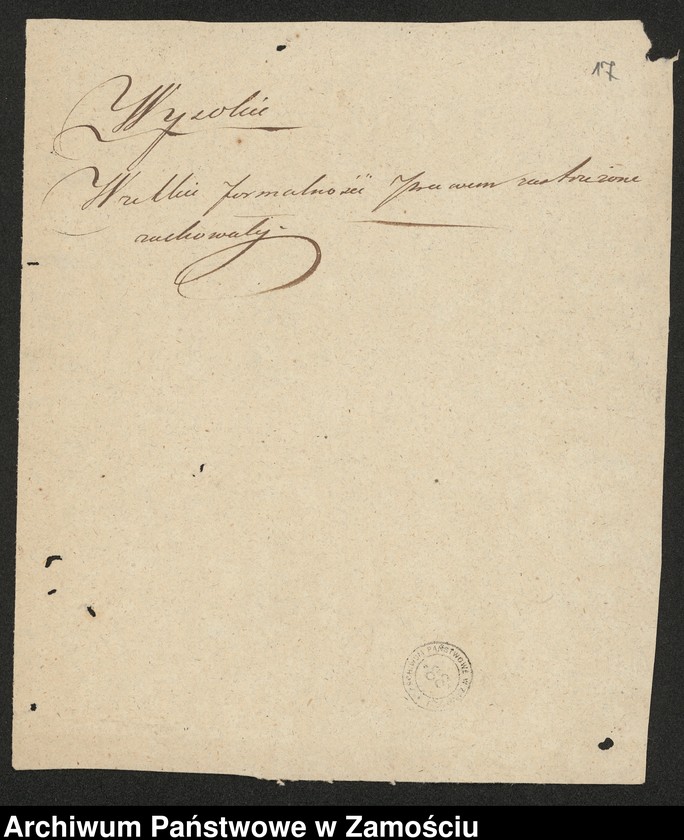 17
Wysokie
Wszelkie formalności prawem zastrzeżone
zachowały.
ARCHIWUM PAŃSTWOWE W
Archiwum Państwowe w Zamościu